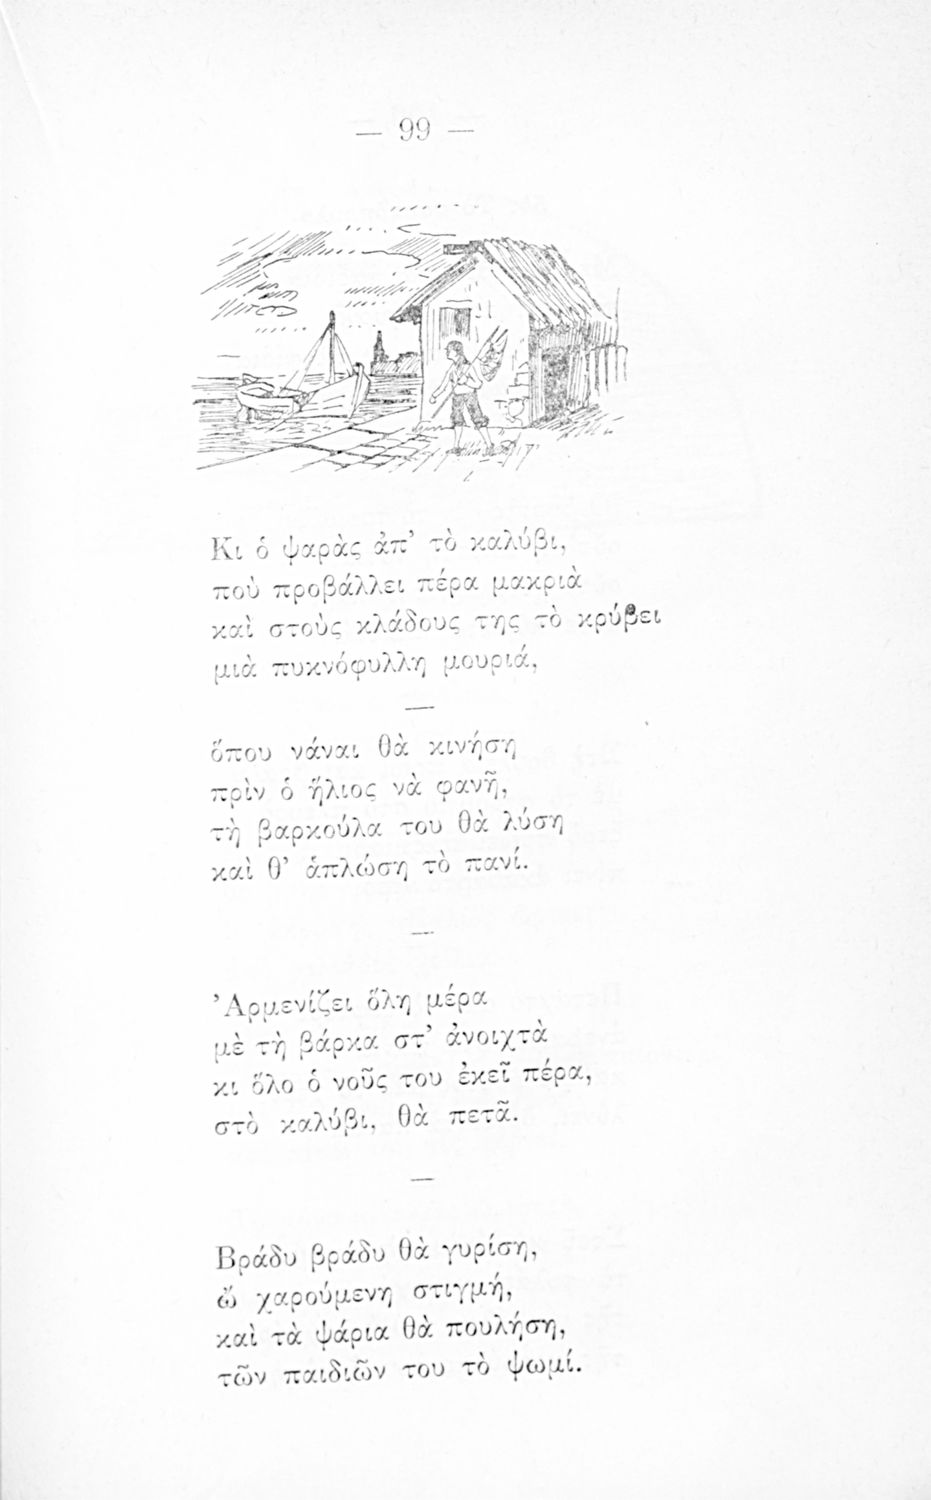 — 99 —
Κι ὁ ψαρὰς ἀπ’ τὸ καλύβι,
ποὺ προβάλλει πέρα μακριὰ
καὶ στοὺς κλάδους της τὸ κρύβει
μιὰ πυκνόφυλλη μουριά,
—
ὅπου νἄναι θὰ κινήση
πρὶν ὁ ἥλιος νὰ φανῆ,
τὴ βαρκούλα του θὰ λύση
καὶ θ’ ἁπλώση τὸ πανί.
—
Ἀρμενίζει ὅλη μέρα
μὲ τὴ βάρκα στ’ ἀνοιχτὰ
κι ὅλο ὁ νοῦς του ἐκεῖ πέρα,
στὸ καλύβι, θὰ πετᾶ.
—
Βράδυ βράδυ θὰ γυρίση,
ὢ χαρούμενη στιγμή,
καὶ τὰ ψάρια θὰ πουλήση,
τῶν παιδιῶν του τὸ ψωμί.